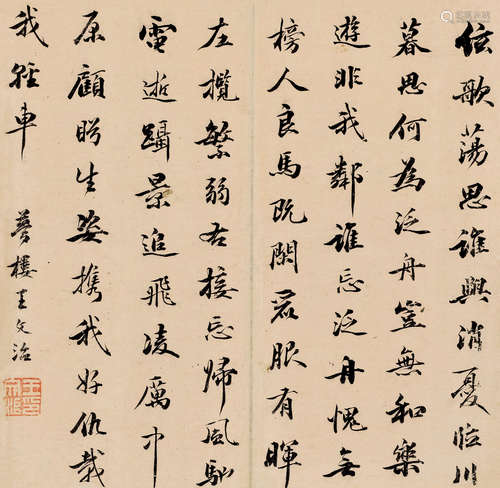 弦歌蕩思誰與消憂臨川
暮思何為泛舟豈無和樂
遊非我鄰誰忘泛舟愧無
榜人良馬既閑麗服有暉
左攬繁弱右接忘歸風馳
電逝躡景追飛凌厲中
原顧盼生姿攜我好仇載
我輕車
夢樓王文治